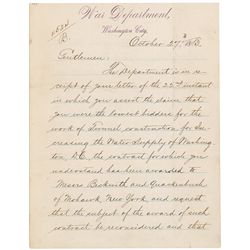 War Department,
Washington City,
October 27th 83.
Gentlemen:
The Department is in re-
ceipt of your letter of the 22nd instant
in which you assert the claim that
you were the lowest bidders for the
work of Tunnel construction for In-
creasing the Water Supply of Washing-
ton, D.C. the contract for which you
understand has been awarded to
Messrs Beckwith and Quackenbush
of Mohawk New York, and request
that the subject of the award of such
contract be reconsidered and that